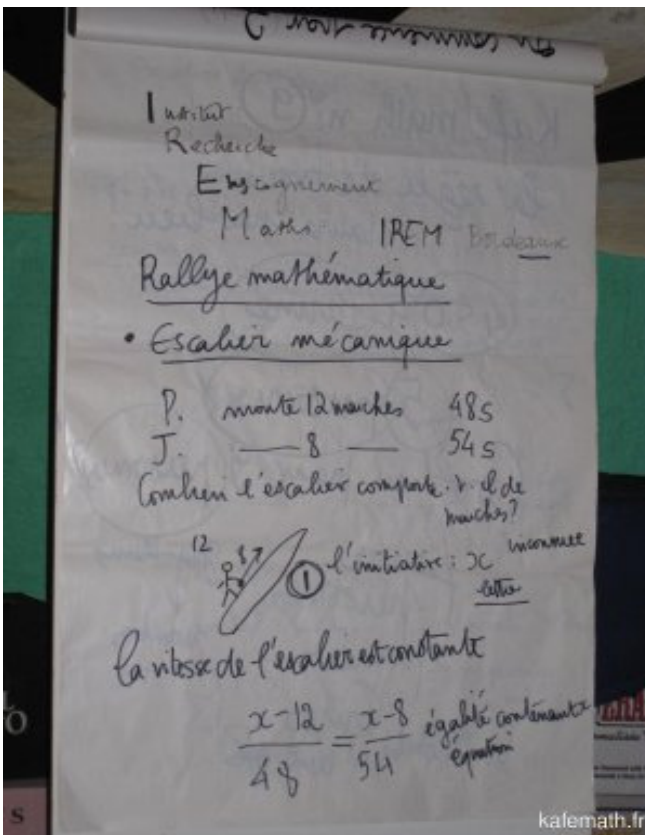 On commence pour ?
Institut
Recherche
Enseignement
Maths IREM Bordeaux
Rallye mathématique
• Escalier mécanique
P. monte 12 marches 48s
J. — 8 — 54s
Combien l'escalier comporte-t-il de
marches?
12
8
① l'initiative : x inconnue
lettre
la vitesse de l'escalier est constante
x-12 / 48 = x-8 / 54 égalité contenant x
équation
S
kafemath.fr